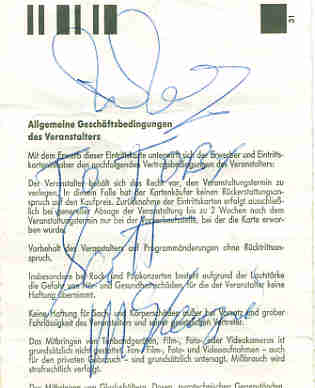 31
Allgemeine Geschäftsbedingungen
des Veranstalters
Mit dem Erwerb dieser Eintrittskarte unterwirft sich der Erwerber und Eintritts-
karteninhaber den nachfolgenden Vertragsbedingungen des Veranstalters:
Der Veranstalter behält sich das Recht vor, den Veranstaltungstermin zu
verlegen. In diesem Falle hat der Kartenkäufer keinen Rückerstattungsan-
spruch auf den Kaufpreis. Zurücknahme der Eintrittskarten erfolgt ausschließ-
lich bei genereller Absage der Veranstaltung bis zu 2 Wochen nach dem
Veranstaltungstermin nur bei der Vorverkaufsstelle, bei der die Karte erwor-
ben wurde.
Vorbehalt des Veranstalters auf Programmänderungen ohne Rücktrittsan-
spruch.
Insbesondere bei Rock- und Popkonzerten besteht aufgrund der Lautstärke
die Gefahr von Hör- und Gesundheitsschäden, für die der Veranstalter keine
Haftung übernimmt.
Keine Haftung für Sach- und Körperschäden außer bei Vorsatz und grober
Fahrlässigkeit des Veranstalters und seiner gesetzlichen Vertreter.
Das Mitbringen von Tonbandgeräten, Film-, Foto- oder Videokameras ist
grundsätzlich nicht gestattet. Ton-, Film-, Foto- und Videoaufnahmen – auch
für den privaten Gebrauch – sind grundsätzlich untersagt. Mißbrauch wird
strafrechtlich verfolgt.